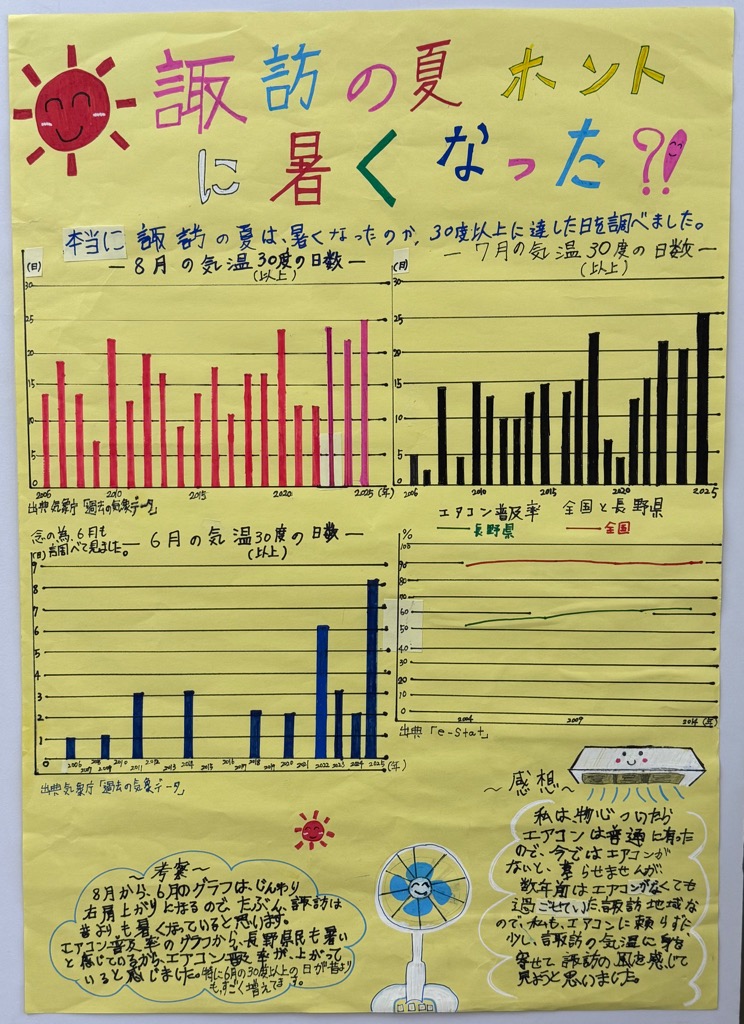 諏訪の夏 ホント
に暑くなった?!
本当に 諏訪の夏は、暑くなったのか、30度以上に達した日を調べました。
ー8月の気温30度の日数ー
(以上)
(日)
30
25
20
15
10
5
0
2006
2010
2015
2020
2025
(年)
出典 気象庁「過去の気象データ」
ー7月の気温30度の日数ー
(以上)
(日)
30
25
20
15
10
5
0
2006
2010
2015
2020
2025
念の為、6月も
調べて見ました。
ー6月の気温30度の日数ー
(以上)
(日)
9
8
7
6
5
4
3
2
1
0
2006
2007
2009
2010
2011
2012
2013
2014
2016
2017
2018
2020
2021
2022
2023
2024
2025
(年)
出典 気象庁「過去の気象データ」
エアコン普及率 全国と長野県
長野県
全国
%
100
90
80
70
60
50
40
30
20
10
0
2004
2009
2014
(年)
出典「e-stat」
~考察~
8月から、6月のグラフは、じんわり
右肩上がりになるので、たぶん、諏訪は
昔よりも暑くなっていると思います。
エアコン普及率のグラフから、長野県民も暑い
と感じているから、エアコン普及率が、上がって
いると感じました。特に6月の30度以上の日が昔より
も、すごく増えてます。
~感想~
私は、物心ついたら
エアコンは普通に有った
ので、今ではエアコンが
ないと、暮らせませんが
数年前はエアコンがなくても
過ごせていた諏訪地域な
ので、私も、エアコンに頼らずに
少し、諏訪の気温に身を
寄せて、諏訪の風を感じて
見ようと思いました。